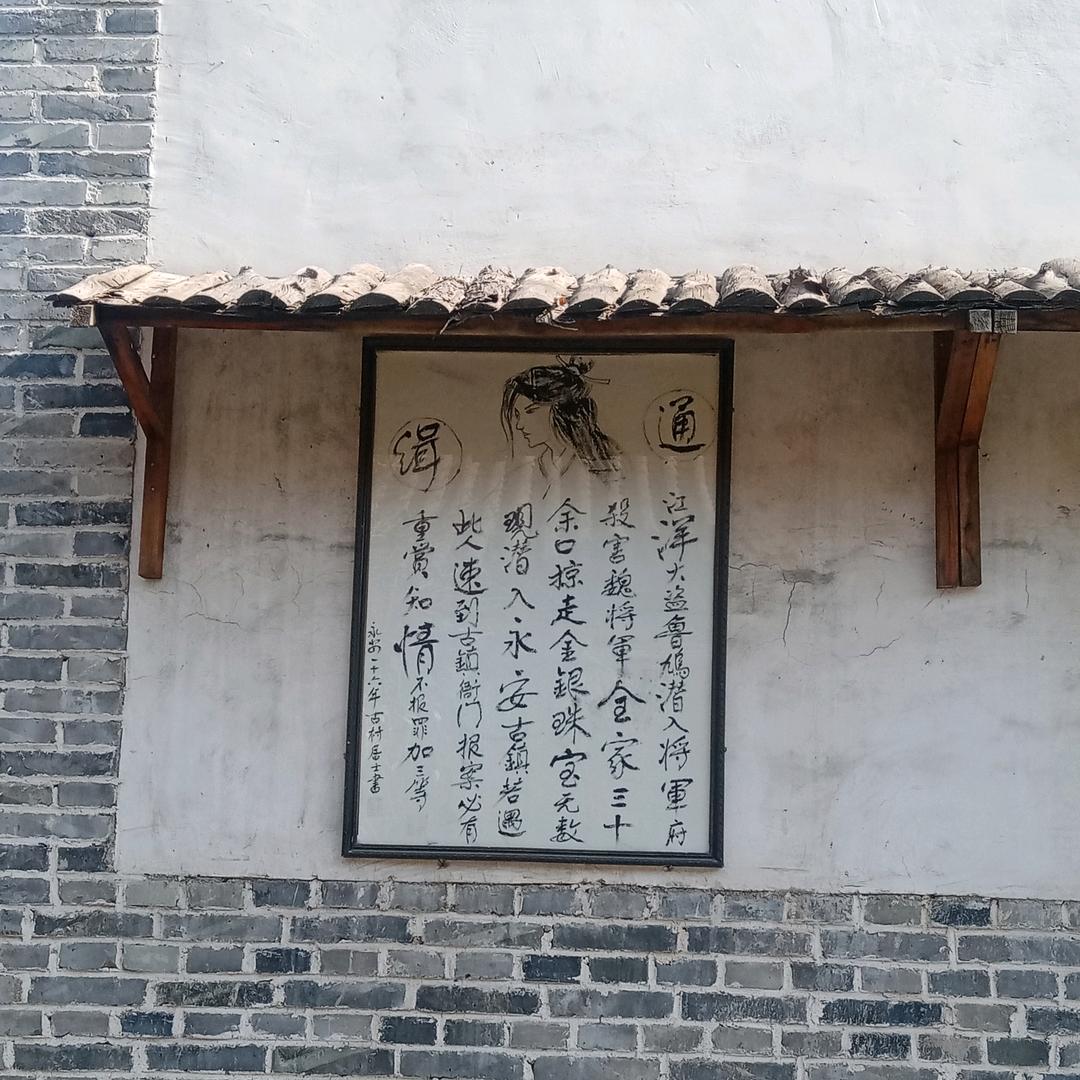 通緝
江洋大盜魯鳩潜入将軍府
殺害魏将軍全家三十
余口掠走金銀珠宝无数
現潜入永安古鎮若遇
此人速到古鎮衙门报案必有
重賞知情不报罪加三等
永安二十六年古村居士書